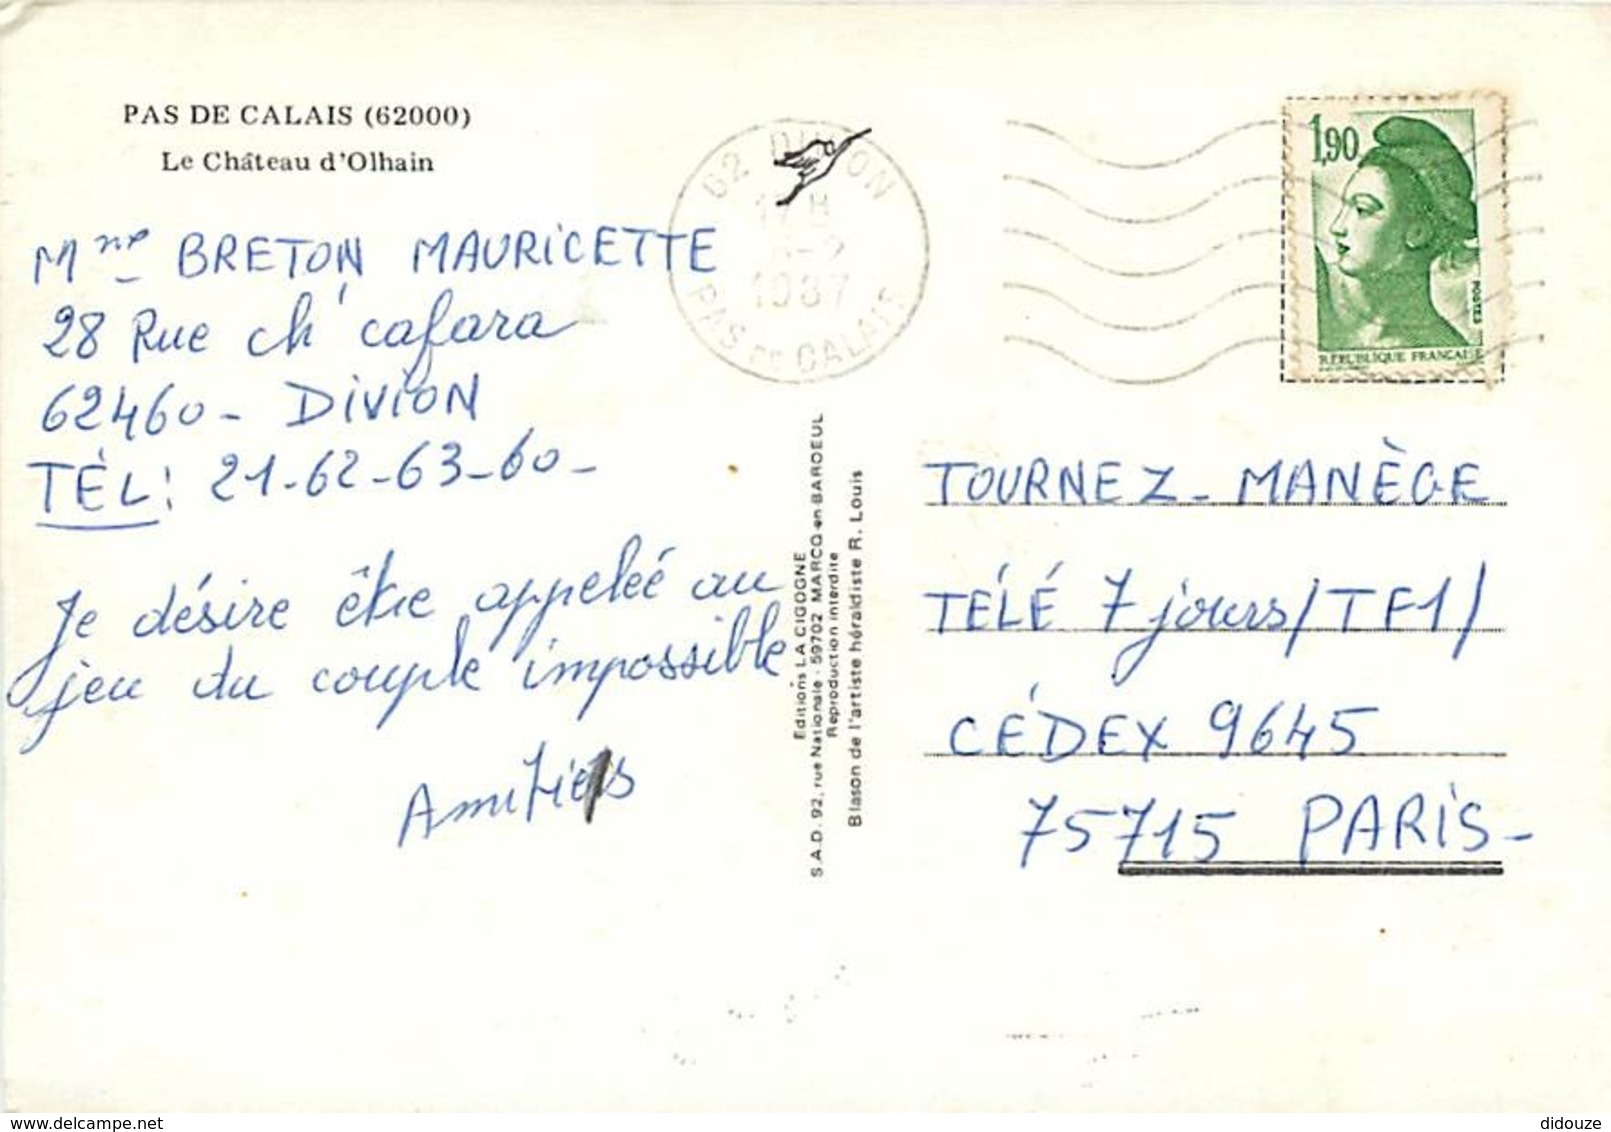 PAS DE CALAIS (62000)
Le Château d'Olhain
Mme BRETON MAURICETTE
28 Rue ch' cafara
62460 - DIVION
TÉL: 21-62-63-60-
Je désire être appeleé au
jeu du couple impossible
Amitiés
62 DIVION
17 H
-2
1987
PAS DE CALAIS
Editions LA CIGOGNE
S.A.D. 92, rue Nationale - 59702 MARCQ-en-BAROEUL
Reproduction interdite
Blason de l'artiste héraldiste R. Louis
1,90
POSTES
RÉPUBLIQUE FRANÇAISE
TOURNEZ - MANÈGE
TÉLÉ 7 jours/TF1/
CÉDEX 9645
75715 PARIS -
delcampe.net
didouze